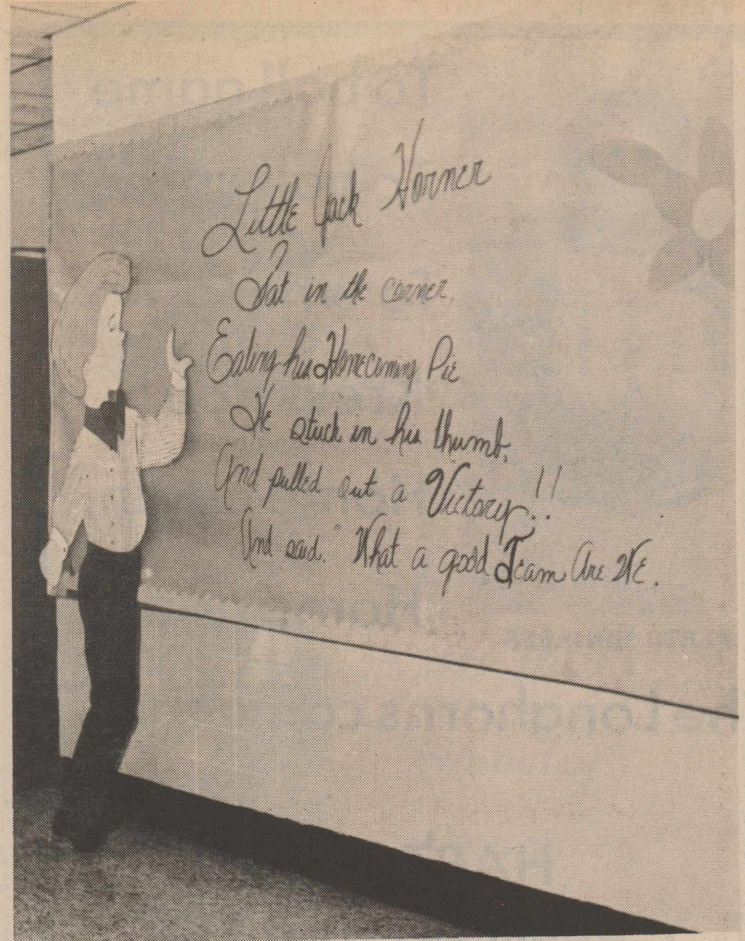 Little Jack Horner
Sat in the corner.
Eating his Homecoming Pie
He stuck in his thumb,
And pulled out a Victory!!
And said. "What a good Team Are WE.